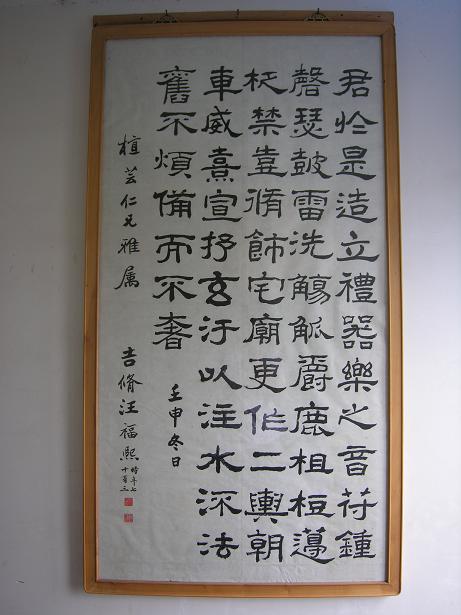 君於是造立禮器樂之音苻鍾
磬瑟鼓雷洗觴觚爵鹿柤梪籩
柉禁壺脩飾宅廟更作二輿朝
車威熹宣抒玄汙以注水流法
舊不煩備而不奢 壬申冬日
植芸仁兄雅属 吉脩汪福熙 時年七十有三